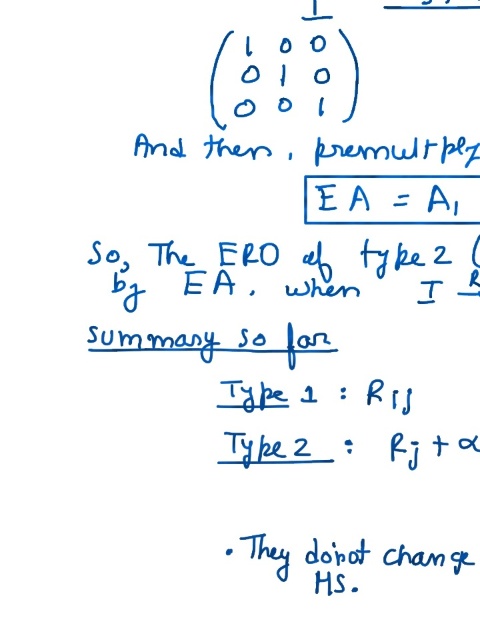 I
1 0 0
0 1 0
0 0 1
And then, premultply
EA = A₁
So, The ERO of type 2 (
by EA. when I
summary so far
Type 1 : Rij
Type 2 : Rj + α
• They do not change
HS.